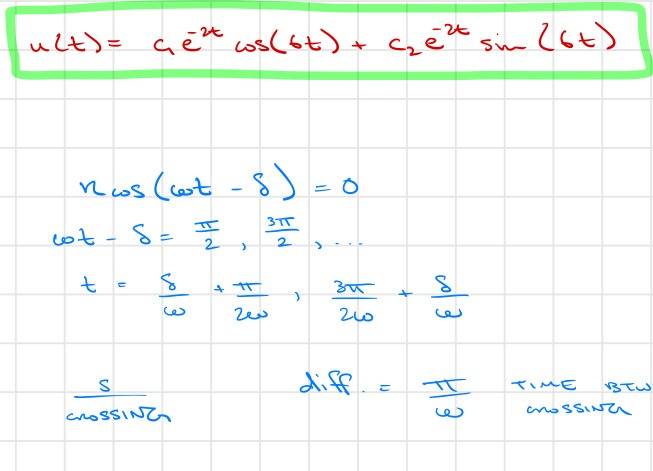 u(t) = c₁e^{-2t} cos(6t) + c₂e^{-2t} sin(6t)
R cos(ωt - δ) = 0
ωt - δ = π/2, 3π/2, ...
t = δ/ω + π/2ω, 3π/2ω + δ/ω
s/CROSSING
diff. = π/ω TIME BTW CROSSING